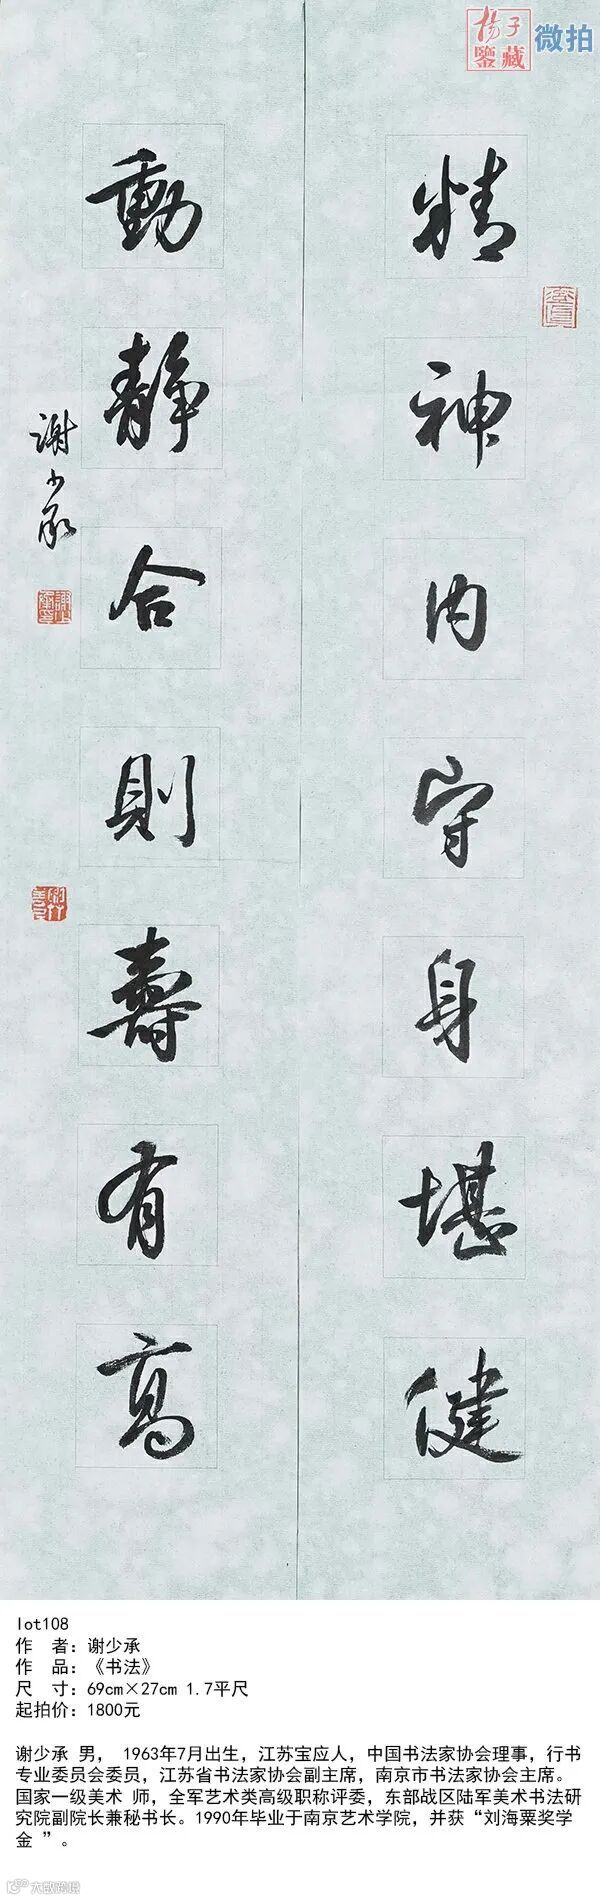 揚子
鑒藏
微拍
精神内守身堪健
動静合則壽有高
谢少承
lot108
作 者：谢少承
作 品：《书法》
尺 寸：69cm×27cm 1.7平尺
起拍价：1800元
谢少承 男， 1963年7月出生，江苏宝应人，中国书法家协会理事，行书
专业委员会委员，江苏省书法家协会副主席，南京市书法家协会主席。
国家一级美术 师，全军艺术类高级职称评委，东部战区陆军美术书法研
究院副院长兼秘书长。1990年毕业于南京艺术学院，并获“刘海粟奖学
金 ”。
大数跨境